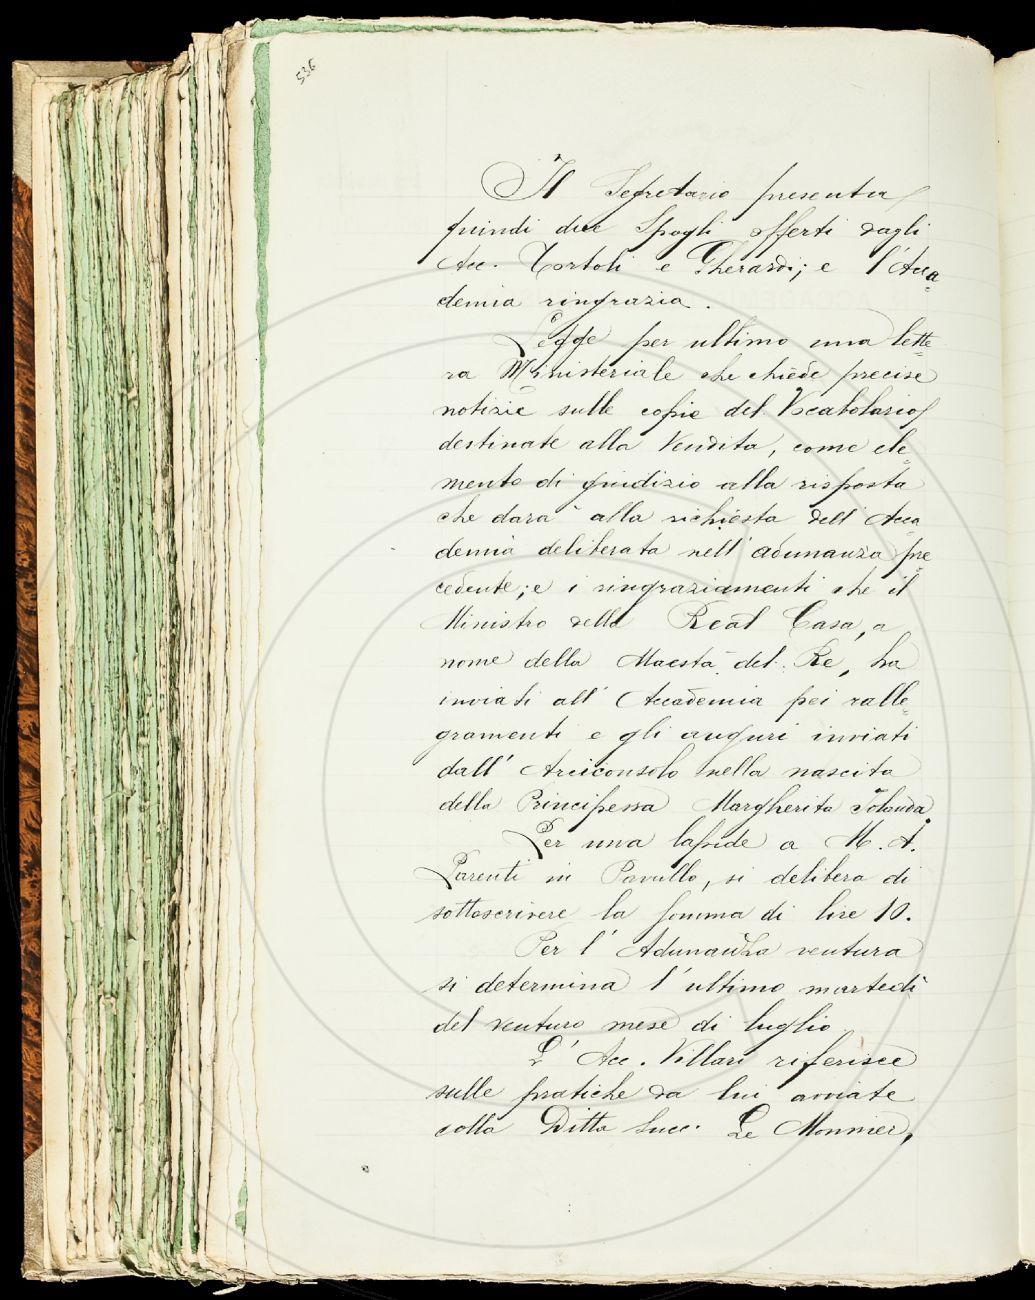 536
Il Segretario presenta
quindi due Spogli offerti dagli
Acc. Tortoli e Gherardi; e l'Acca=
demia ringrazia.
Legge per ultimo una lette=
ra Ministeriale che chiede precise
notizie sulle copie del Vocabolario
destinate alla Vendita, come ele=
mento di giudizio alla risposta
che darà alla richiesta dell'Acca
demia deliberata nell'adunanza pre=
cedente; e i ringraziamenti che il
Ministro della Real Casa, a
nome della Maestà del Re, ha
inviati all'Accademia pei ralle=
gramenti e gli auguri inviati
dall'Arciconsolo nella nascita
della Principessa Margherita Iolanda.
Per una lapide a M. A.
Parenti in Pavullo, si delibera di
sottoscrivere la somma di lire 10.
Per l'Adunanza ventura
si determina l'ultimo martedì
del venturo mese di luglio.
L'Acc. Villari riferisce
sulle pratiche da lui avviate
colla Ditta Succ. Le Monnier,